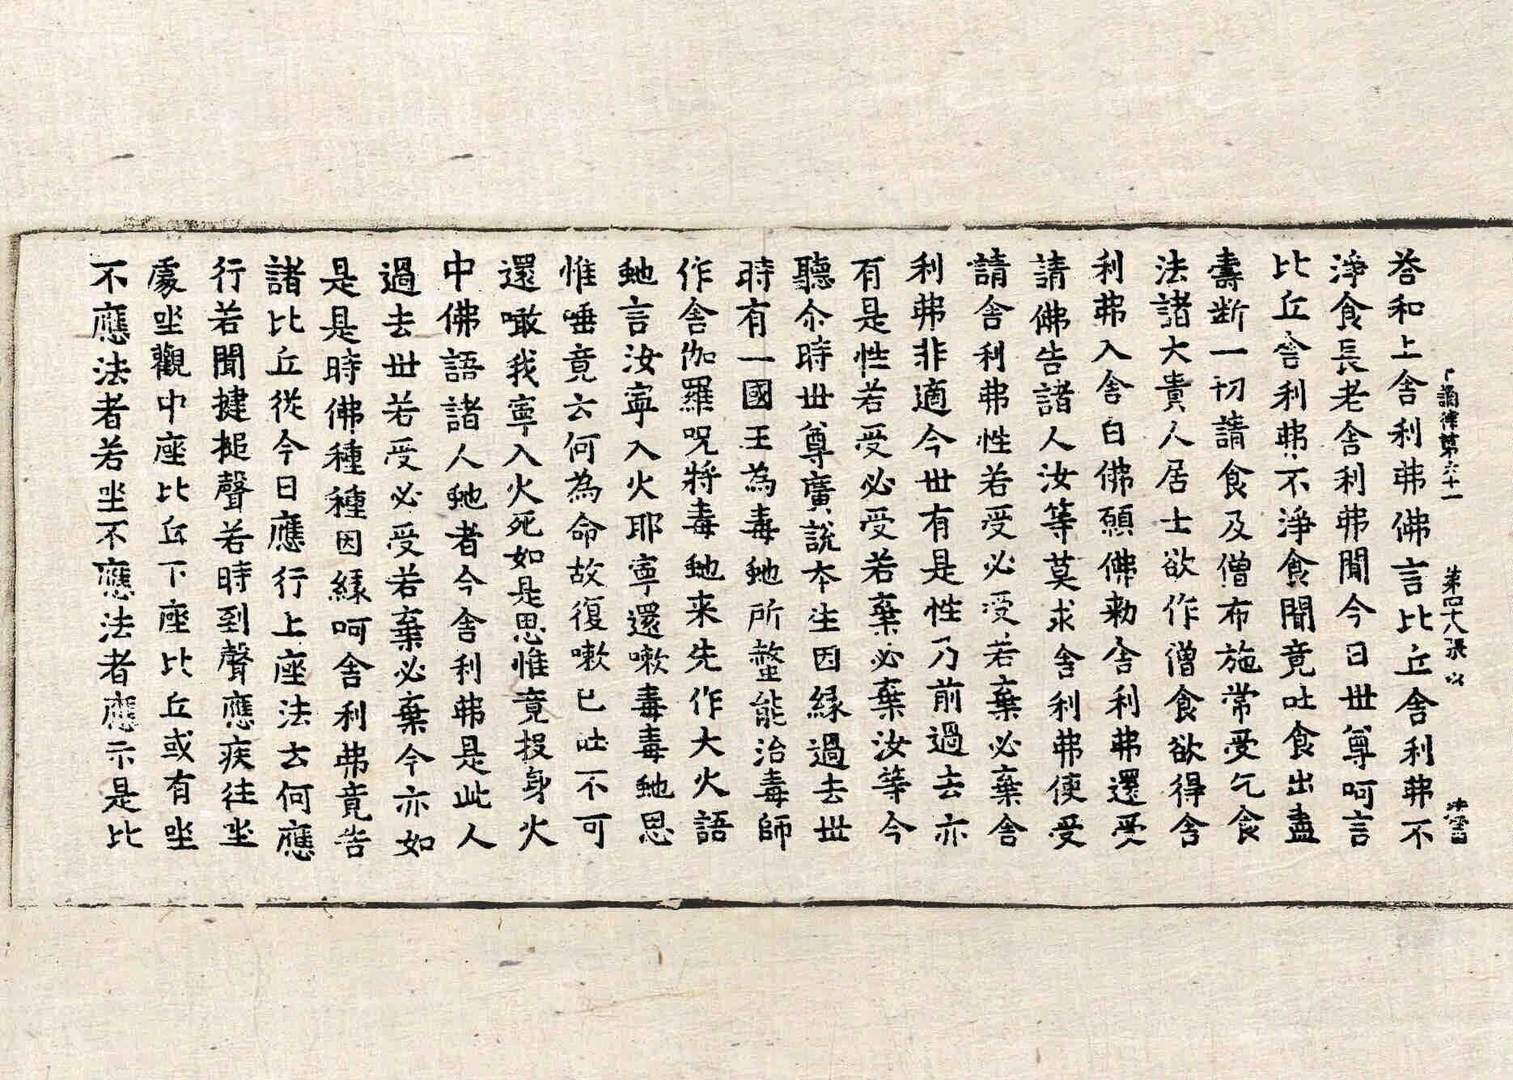 十誦律第六十一 第四八張 以字号
荅和上舍利弗佛言比丘舍利弗不
淨食長老舍利弗聞今日世尊呵言
比丘舍利弗不淨食聞竟吐食出盡
壽斷一切請食及僧布施常受乞食
法諸大貴人居士欲作僧食欲得舍
利弗入舍白佛願佛勑舍利弗還受
請佛告諸人汝等莫求舍利弗使受
請舍利弗性若受必受若棄必棄舍
利弗非適今世有是性乃前過去亦
有是性若受必受若棄必棄汝等今
聽尒時世尊廣說本生因緣過去世
時有一國王為毒虵所螫能治毒師
作舍伽羅呪將毒虵來先作大火語
虵言汝寧入火耶寧還嗽毒毒虵思
惟唾竟云何為命故復嗽已吐不可
還噉我寧入火死如是思惟竟投身火
中佛語諸人虵者今舍利弗是此人
過去世若受必受若棄必棄今亦如
是是時佛種種因緣呵舍利弗竟告
諸比丘從今日應行上座法云何應
行若聞揵搥聲若時到聲應疾往坐
處坐觀中座比丘下座比丘或有坐
不應法者若坐不應法者應示是比